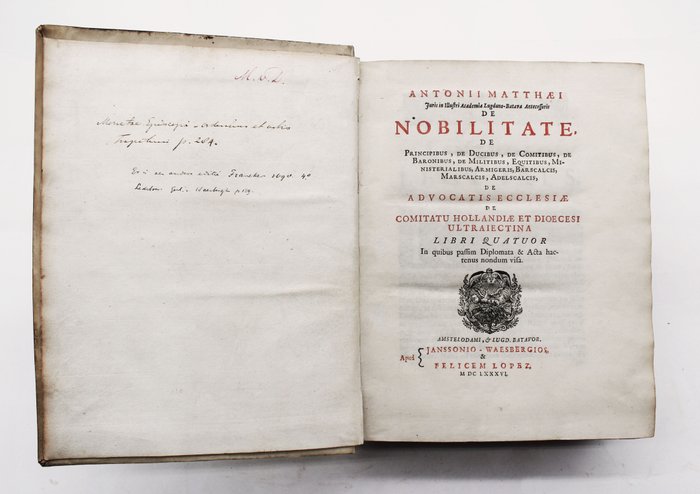 M. v. D.
Monetae Episcopi
p. 284.
Er is een andere editie Franeker 1690. 4°
ANTONII MATTHÆI
Juris in Illustri Academia Lugduno-Batava Antecessoris
DE
NOBILITATE,
DE
PRINCIPIBUS, DE DUCIBUS, DE COMITIBUS, DE
BARONIBUS, DE MILITIBUS, EQUITIBUS, MI-
NISTERIALIBUS, ARMIGERIS, BARSCALCIS,
MARSCALCIS, ADELSCALCIS,
DE
ADVOCATIS ECCLESIÆ
DE
COMITATU HOLLANDIÆ ET DIOECESI
ULTRAIECTINA
LIBRI QUATUOR
In quibus passim Diplomata & Acta hac-
tenus nondum visa.
AMSTELODAMI, & LUGD. BATAVOR.
Apud JANSSONIO-WAESBERGIOS,
&
FELICEM LOPEZ,
M DC LXXXVI.